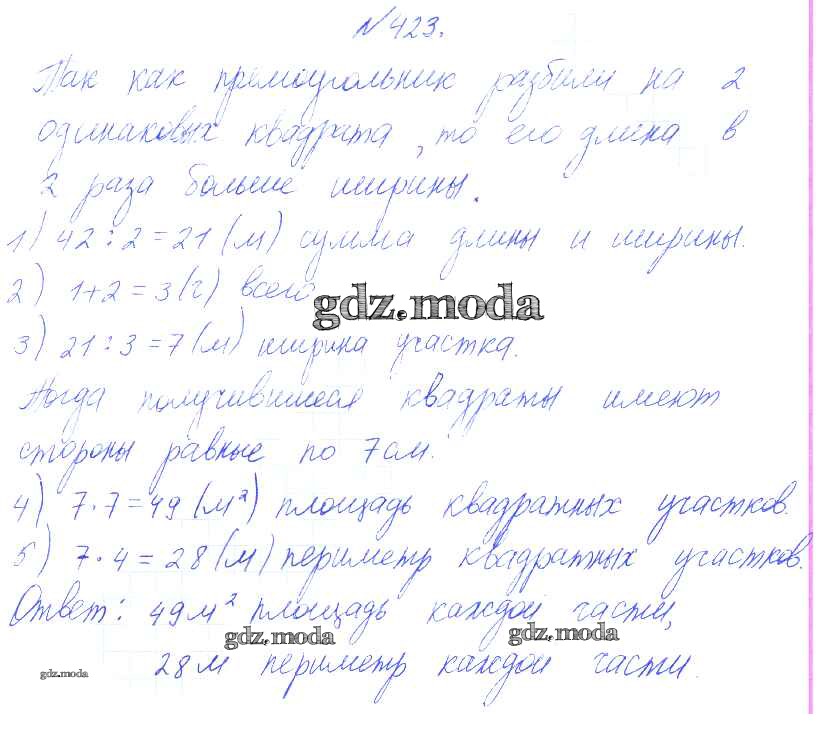 №423.
Так как прямоугольник разбили на 2
одинаковых квадрата, то его длина в
2 раза больше ширины.
1) 42 : 2 = 21 (м) сумма длины и ширины.
2) 1+2 = 3 (ч) всего
gdz.moda
3) 21 : 3 = 7 (м) ширина участка.
Тогда получившиеся квадраты имеют
стороны равные по 7 см.
4) 7 · 7 = 49 (м²) площадь квадратных участков.
5) 7 · 4 = 28 (м) периметр квадратных участков.
Ответ: 49 м² площадь каждой части,
gdz.moda gdz.moda
28 м периметр каждой части.
gdz.moda